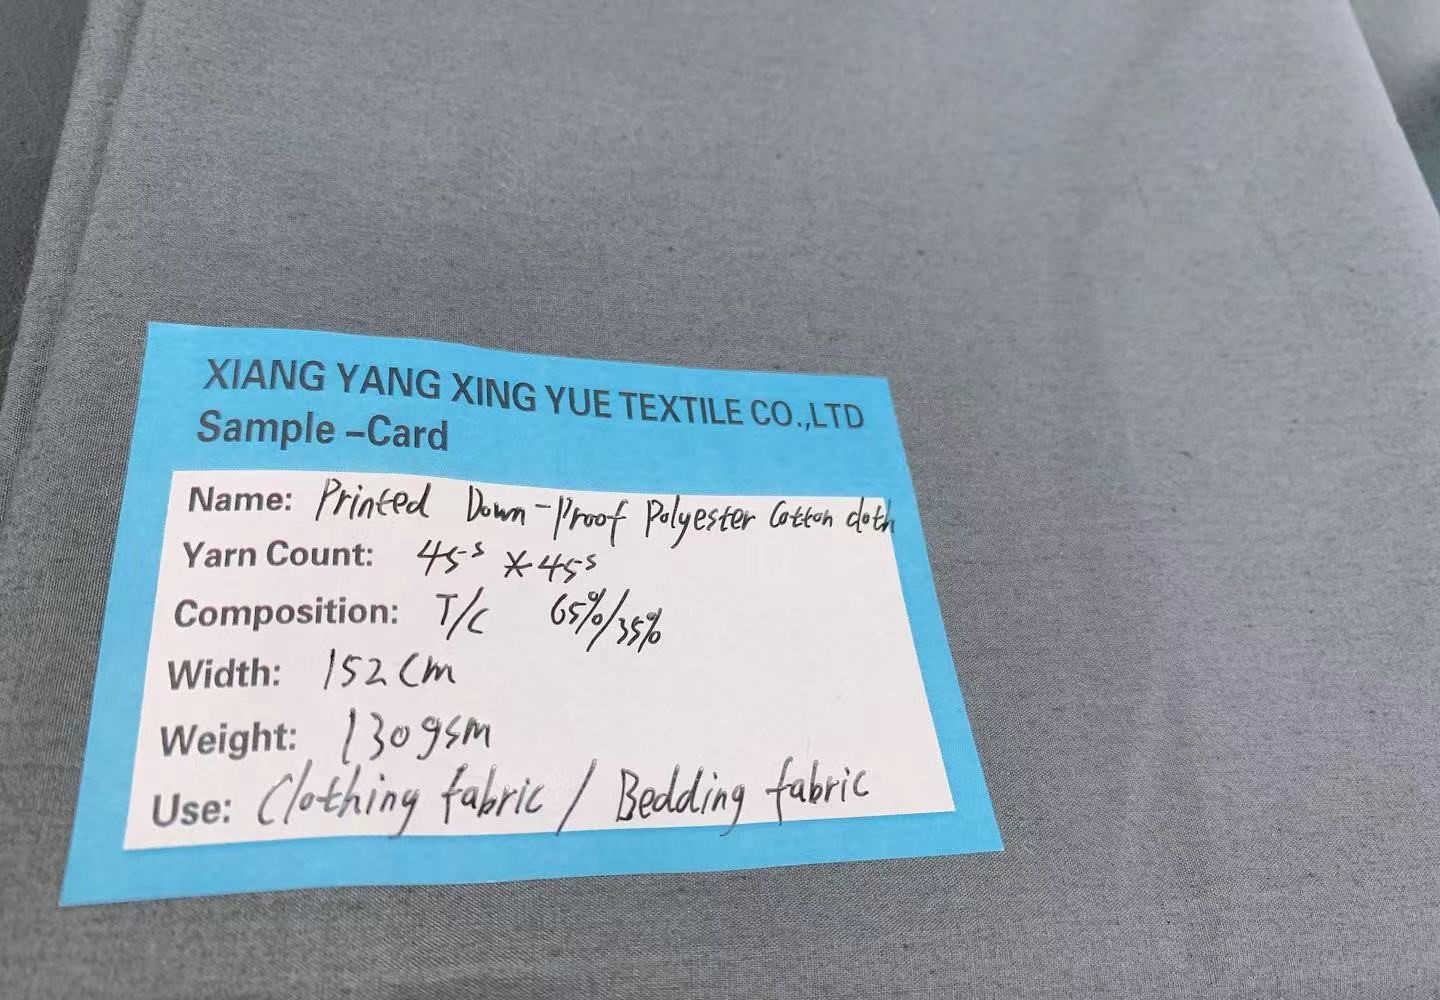 XIANG YANG XING YUE TEXTILE CO.,LTD
Sample -Card
Name: Printed Down-Proof Polyester Cotton cloth
Yarn Count: 45ˢ * 45ˢ
Composition: T/C 65%/35%
Width: 152cm
Weight: 130gsm
Use: Clothing fabric / Bedding fabric